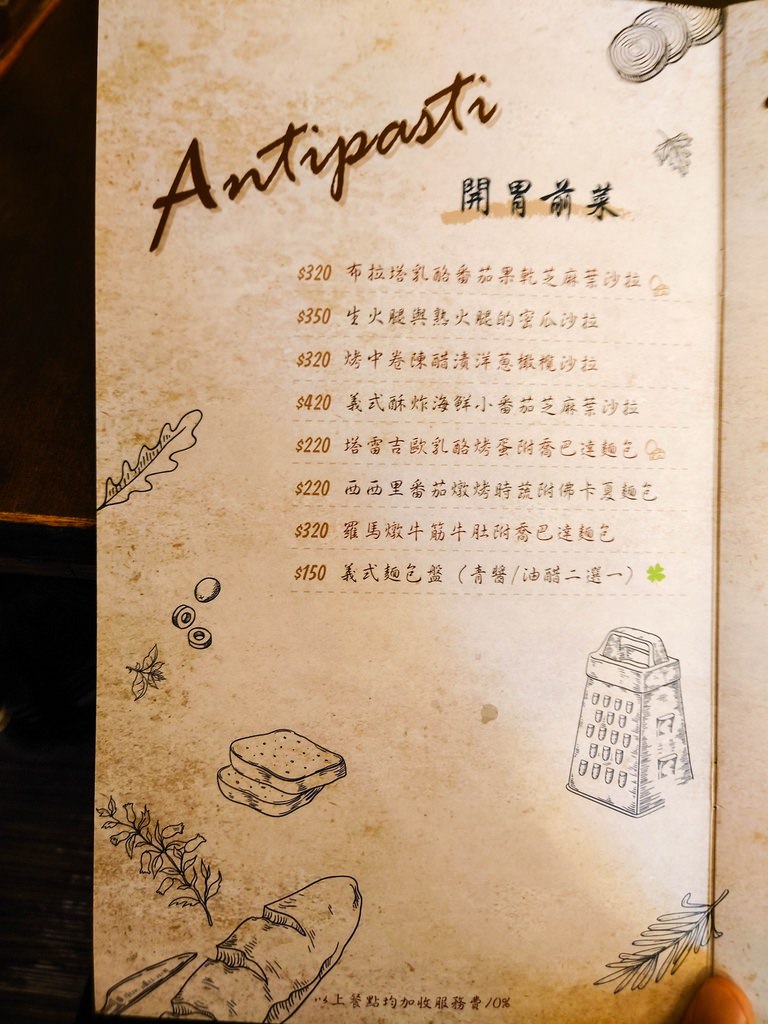 Antipasti
開胃前菜
$320 布拉塔乳酪番茄果乾芝麻葉沙拉
$350 生火腿與熟火腿的密瓜沙拉
$320 烤中卷陳醋漬洋蔥橄欖沙拉
$420 義式酥炸海鮮小番茄芝麻葉沙拉
$220 塔雷吉歐乳酪烤蛋附喬巴達麵包
$220 西西里番茄燉烤時蔬附佛卡夏麵包
$320 羅馬燉牛筋牛肚附喬巴達麵包
$150 義式麵包盤（青醬/油醋二選一）
以上餐點均加收服務費10%